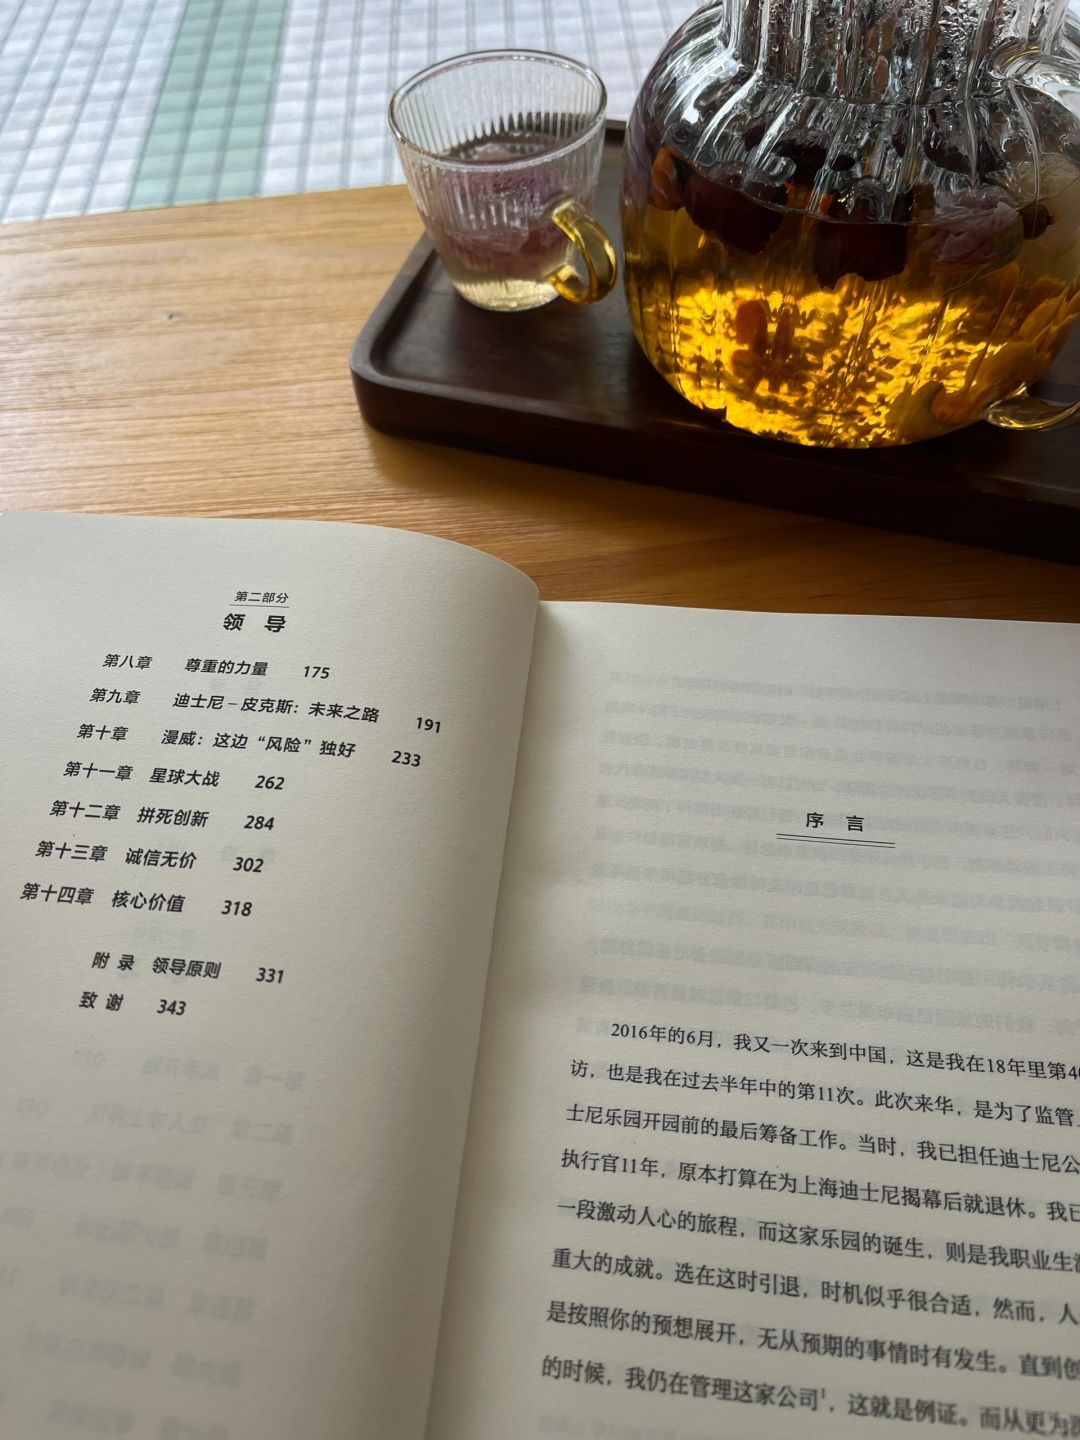 第二部分
领 导
第八章 尊重的力量 175
第九章 迪士尼－皮克斯：未来之路 191
第十章 漫威：这边“风险”独好 233
第十一章 星球大战 262
第十二章 拼死创新 284
第十三章 诚信无价 302
第十四章 核心价值 318
附 录 领导原则 331
致 谢 343
序 言
2016年的6月，我又一次来到中国，这是我在18年里第40
访，也是我在过去半年中的第11次。此次来华，是为了监管
士尼乐园开园前的最后筹备工作。当时，我已担任迪士尼公
执行官11年，原本打算在为上海迪士尼揭幕后就退休。我已
一段激动人心的旅程，而这家乐园的诞生，则是我职业生涯
重大的成就。选在这时引退，时机似乎很合适，然而，人
是按照你的预想展开，无从预期的事情时有发生。直到创
的时候，我仍在管理这家公司¹，这就是例证。而从更为深